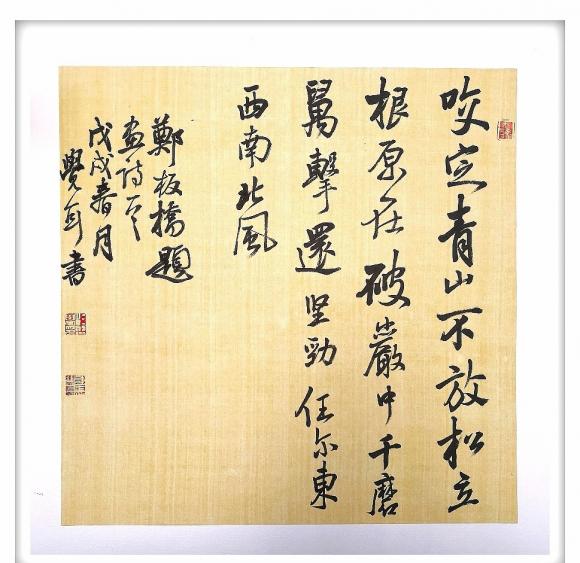 咬定青山不放松立
根原在破嚴中千磨
萬擊還坚勁任尔東
西南北風
鄭板橋題
画诗
戊戌春月
覺書